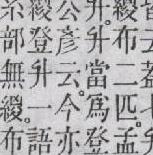 緵布二匹孟
升升當爲登
公彥云今亦
緵登升一語
部無緵布